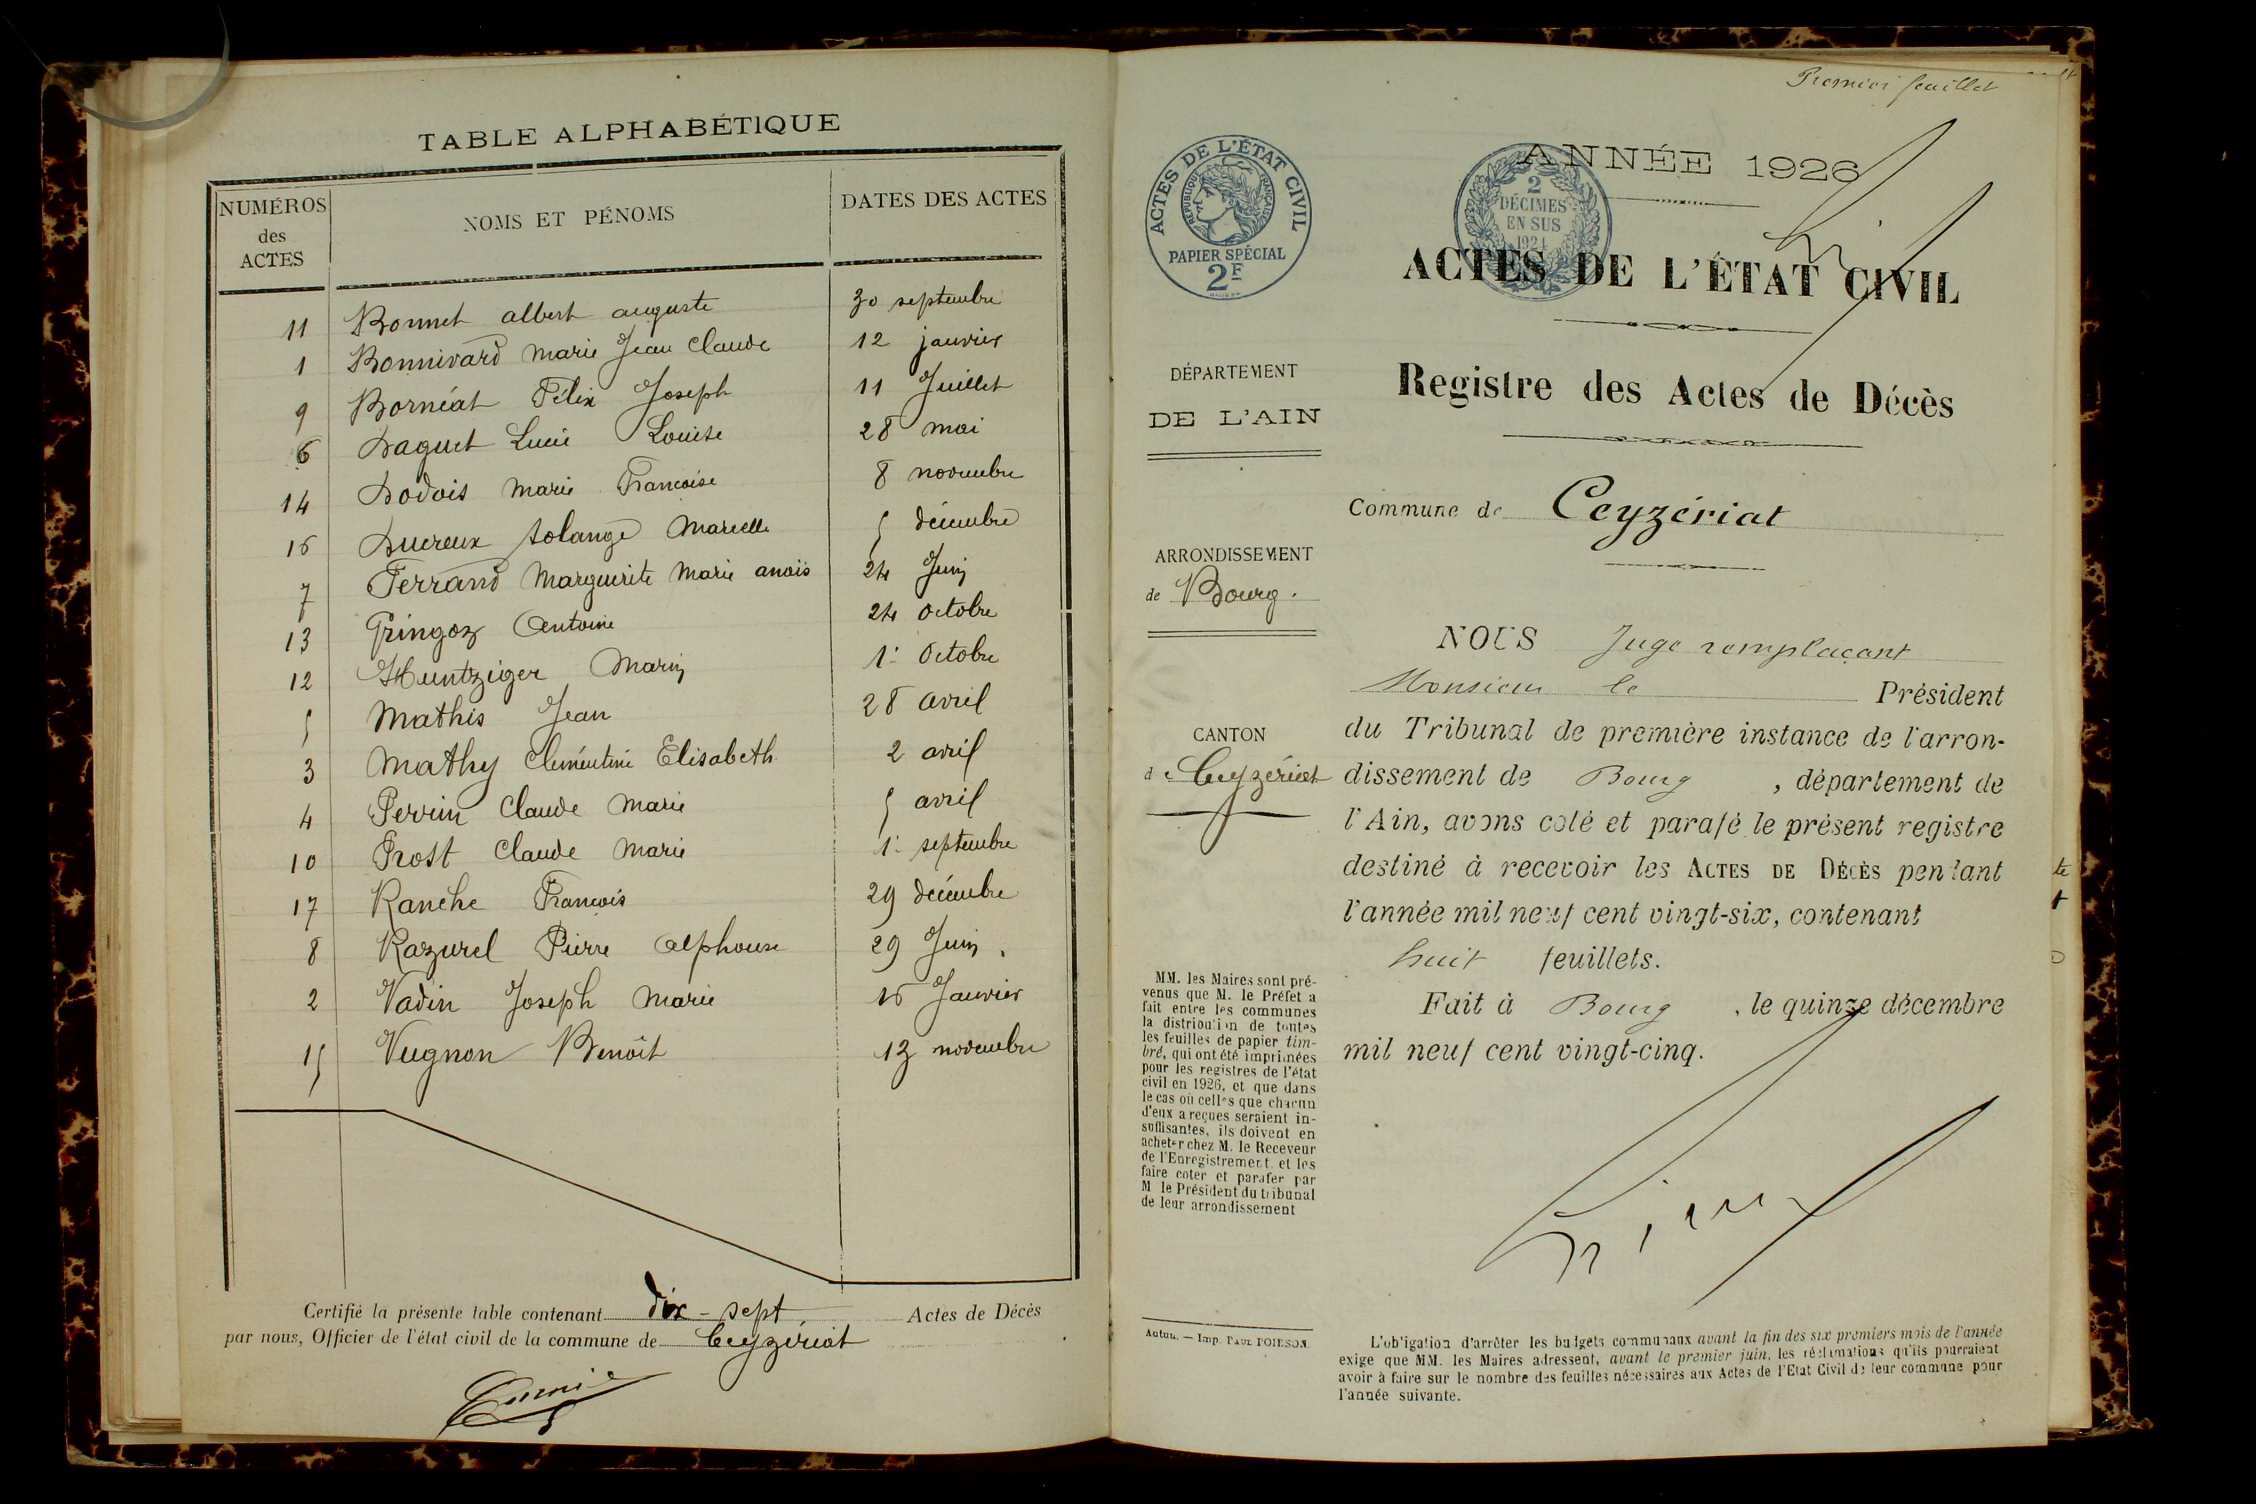 TABLE ALPHABÉTIQUE
NUMÉROS
des
ACTES
NOMS ET PÉNOMS
DATES DES ACTES
11 Bonnet albert auguste 30 septembre
1 Bonnivard Marie Jean Claude 12 janvier
9 Bornéat Félix Joseph 11 Juillet
6 Daguet Lucie Louise 28 mai
14 Dodois Marie Francoise 8 novembre
16 Ducreux Solange Marcelle 5 décembre
7 Ferrand Marguerite Marie anaïs 24 Juin
13 Gringoz Antoine 24 Octobre
12 Huntziger Marin 1: Octobre
5 Mathis Jean 28 avril
3 Mathy Clémentine Elisabeth 2 avril
4 Perrin Claude Marie 5 avril
10 Prost Claude Marie 1: septembre
17 Ranche François 29 décembre
8 Razurel Pierre Alphonse 29 Juin.
2 Vadin Joseph Marie 16 Janvier
15 Vugnon Benoît 13 novembre
Certifié la présente table contenant dix-sept Actes de Décès
par nous, Officier de l'état civil de la commune de Ceyzériat
Premier feuillet
ACTES DE L'ÉTAT CIVIL
RÉPUBLIQUE FRANÇAISE
PAPIER SPÉCIAL
2F
2
DÉCIMES
EN SUS
1924
ANNÉE 1926
ACTES DE L'ÉTAT CIVIL
Registre des Actes de Décès
DÉPARTEMENT
DE L'AIN
Commune de Ceyzériat
ARRONDISSEMENT
de Bourg.
CANTON
de Ceyzériat
NOUS Juge remplaçant
Monsieur le Président
du Tribunal de première instance de l'arron-
dissement de Bourg, département de
l'Ain, avons coté et parafé le présent registre
destiné à recevoir les ACTES DE DÉCÈS pendant
l'année mil neuf cent vingt-six, contenant
huit feuillets.
Fait à Bourg, le quinze décembre
mil neuf cent vingt-cinq.
MM. les Maires sont pré-
venus que M. le Préfet a
fait entre les communes
la distribution de toutes
les feuilles de papier tim-
bré, qui ont été imprimées
pour les registres de l'état
civil en 1926, et que dans
le cas où celles que chacun
d'eux a reçues seraient in-
suffisantes, ils doivent en
acheter chez M. le Receveur
de l'Enregistrement, et les
faire coter et parafer par
M le Président du tribunal
de leur arrondissement
Autun. — Imp. PAUL POIRSON.
L'obligation d'arrêter les budgets communaux avant la fin des six premiers mois de l'année
exige que MM. les Maires adressent, avant le premier juin, les réclamations qu'ils pourraient
avoir à faire sur le nombre des feuilles nécessaires aux Actes de l'Etat Civil de leur commune pour
l'année suivante.